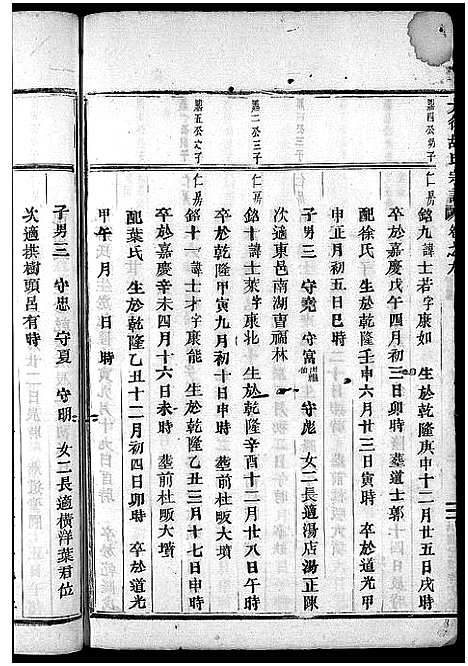 銘九諱士若字康如 生於乾隆庚申十二月廿五日戌時
卒於嘉慶戊午四月初三日卯時 葬道士郭
配徐氏 生於乾隆壬申六月廿三日寅時 卒於道光甲
申正月初五日巳時
子男三 守堯 守富 守彪 女二長適湯店湯正陳
次適東邑南湖曹福林
銘十諱士萊字康北 生於乾隆辛酉十二月廿八日午時
卒於乾隆甲寅九月初十日申時 葬前杜畈大墳
銘十一諱士才字康能 生於乾隆乙丑三月十七日申時
卒於嘉慶辛未四月十六日未時 葬前杜畈大墳
配葉氏 生於乾隆乙丑十二月初四日卯時 卒於道光
甲午 月 日 時
子男三 守忠 守夏 守明 女二長適橫洋葉君位
次適拱樹頭呂有時